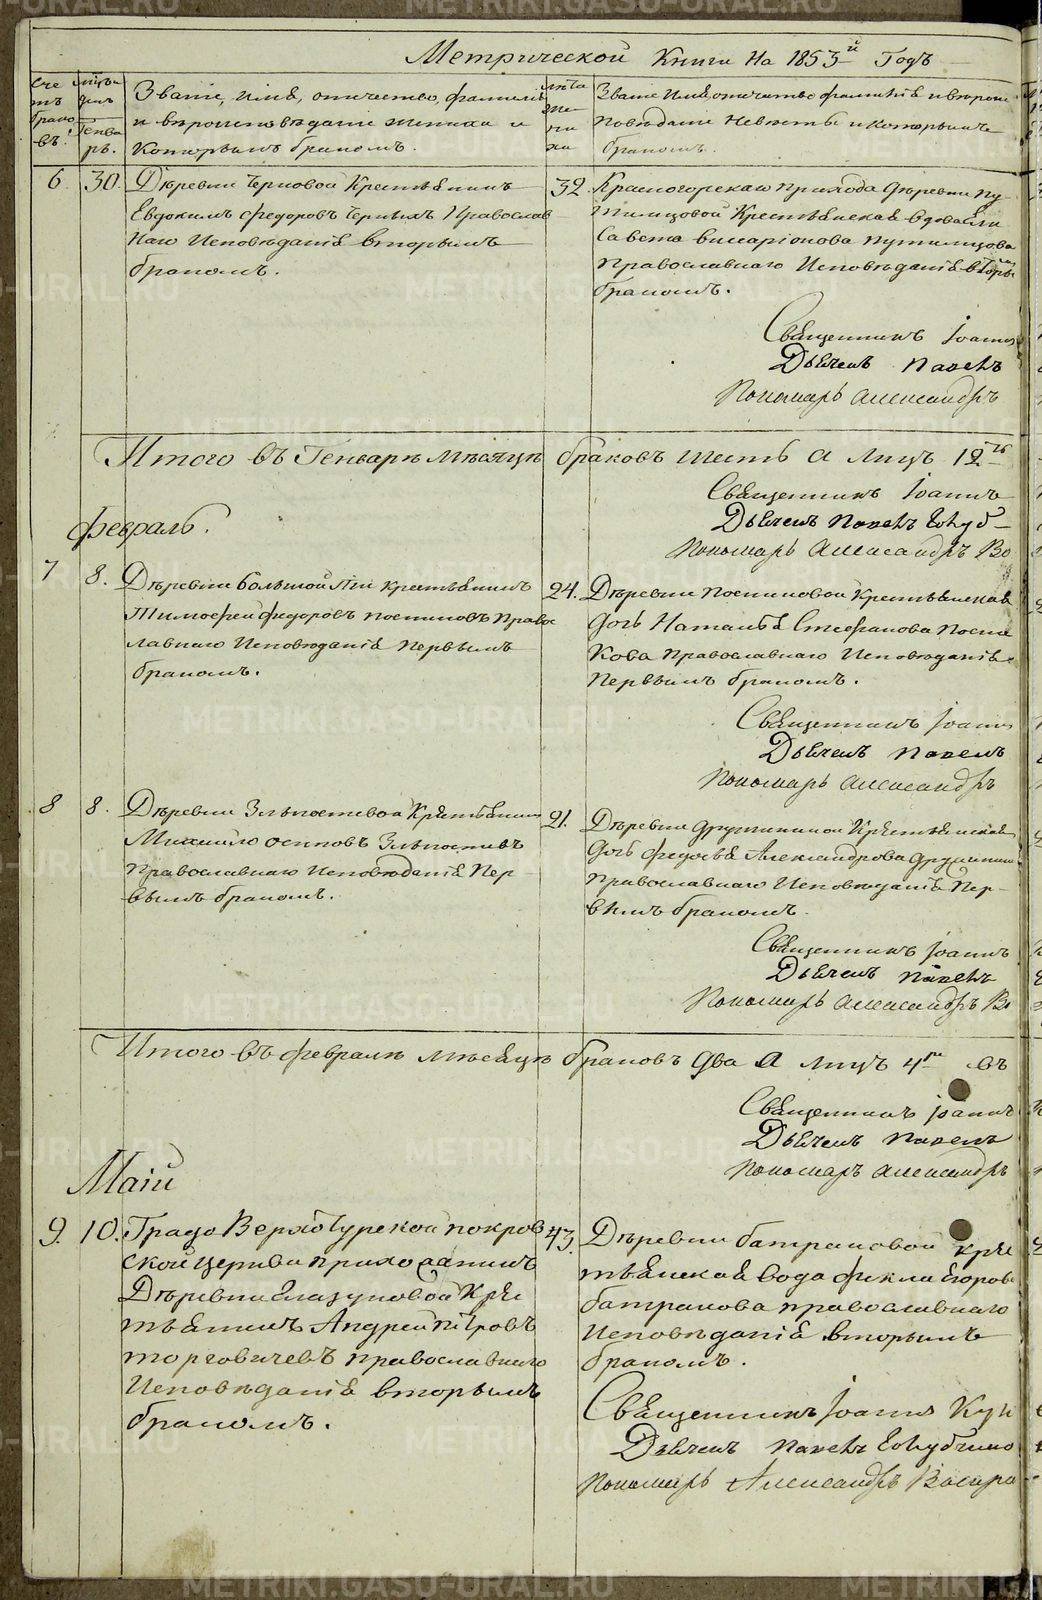 Метрической Книги На 1853й Годъ
Сче
тъ
брако
въ.
мѣся
цъ
Генва
рь.
Званіе, имя, отчество, фамилія
и вѣроисповѣданіе жениха и
Которымъ бракомъ.
лѣта
же
ни
ха
Званіе Имя отчество фамилія и вѣроис
повѣданіе Невѣсты и которымъ
бракомъ.
6.
30.
Деревни Черновой Крестьянинъ
Евдокимъ Федоровъ Черныхъ Православ
наго Исповѣданія вторымъ
бракомъ.
32
Красногорскаго прихода деревни Пу
тилицовой Крестьянская вдова Ели
савета виссаріонова путилицова
православнаго Исповѣданія вторы
бракомъ.
Священникъ Іоаннъ
Дьячекъ Павелъ
Пономарь Александръ
Итого въ Генварѣ мѣсяцѣ браковъ шесть а лицъ 12ть
Священникъ Іоаннъ
Дьячекъ Павелъ
Пономарь Александръ
февраль.
7
8.
Деревни большой крестьянинъ
Тимофей федоровъ постниковъ Правос
лавнаго Исповѣданія первымъ
бракомъ.
24.
Деревни Постниковой Крестьянская
дочь Наталья Стефанова Постни
кова православнаго Исповѣданія
первымъ бракомъ.
Священникъ Іоаннъ
Дьячекъ Павелъ
Пономарь Александръ
8
8.
Деревни Злыгостевой Крестьянинъ
Михайло осиповъ Злыгостевъ
православнаго Исповѣданія Пер-
вымъ бракомъ.
21.
Деревни дружининой Крестьянская
дочь федосья Александрова дружинин
православнаго Исповѣданія Пер-
вымъ бракомъ.
Священникъ Іоаннъ
Дьячекъ Павелъ
Пономарь Александръ
Итого въ февралѣ мѣсяцѣ браковъ два а лицъ 4ре въ
Священникъ Іоаннъ
Дьячекъ Павелъ
Пономарь Александръ
Маій
9.
10.
Града Верхотурской покров
ской церкви прихожанинъ
Деревни Глазуновой Кре
стьянинъ Андрей Петровъ
торговичевъ православнаго
Исповѣданія вторымъ
бракомъ.
43.
Деревни батраковой кре
стьянская вдова фекла Егорова
батракова православнаго
Исповѣданія вторымъ
бракомъ.
Священникъ Іоаннъ
Дьячекъ Павелъ
Пономарь Александръ
METRIKI.GASO-URAL.RU